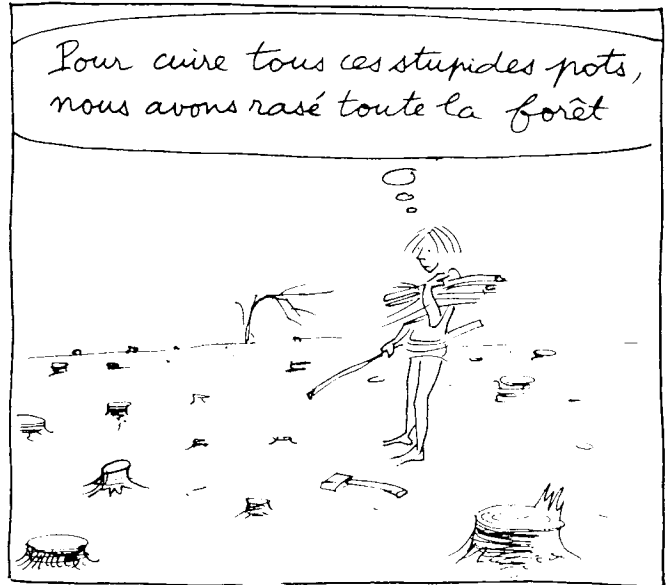 Pour cuire tous ces stupides pots,
nous avons rasé toute la forêt